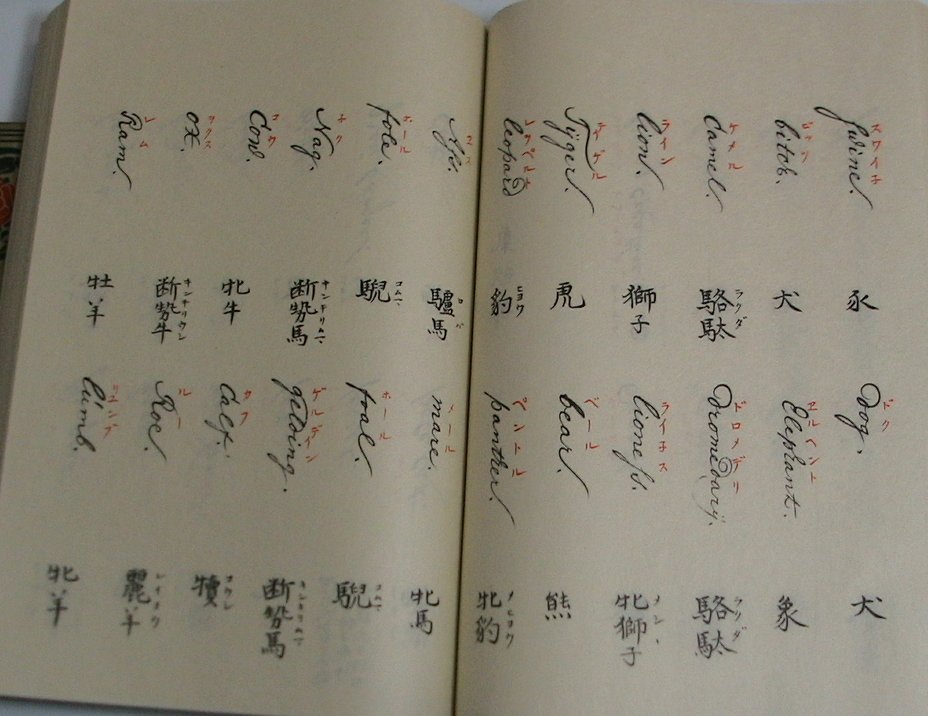 Swine.
スワイネ
豕
Dog.
ドク
犬
bitch.
犬
Elephant.
象
Camel.
ケメル
駱駄
ラクダ
Dromedarÿ.
ドロメデリ
駱駄
ラクダ
lion.
ライン
獅子
lioness.
ライネス
牝獅子
Tÿger.
テイゲル
虎
bear.
ベール
熊
leopard
豹
ヒョウ
panther.
ペントル
牝豹
メヒョウ
驢馬
ロバ
mare.
メール
牝馬
fola.
ホール
騉
コムマ
foal.
ホール
騉
コムマ
Nag.
ネク
断勢馬
キンキリムマ
gelding.
ゲルデイン
断勢馬
キンキリムマ
Cow.
コウ
牝牛
Calf.
カフ
犢
コウシ
ox.
ヲクス
断勢牛
キンキリウシ
Roe.
ルー
麗羊
レイヨウ
Ram.
レム
牡羊
lumb.
牝羊